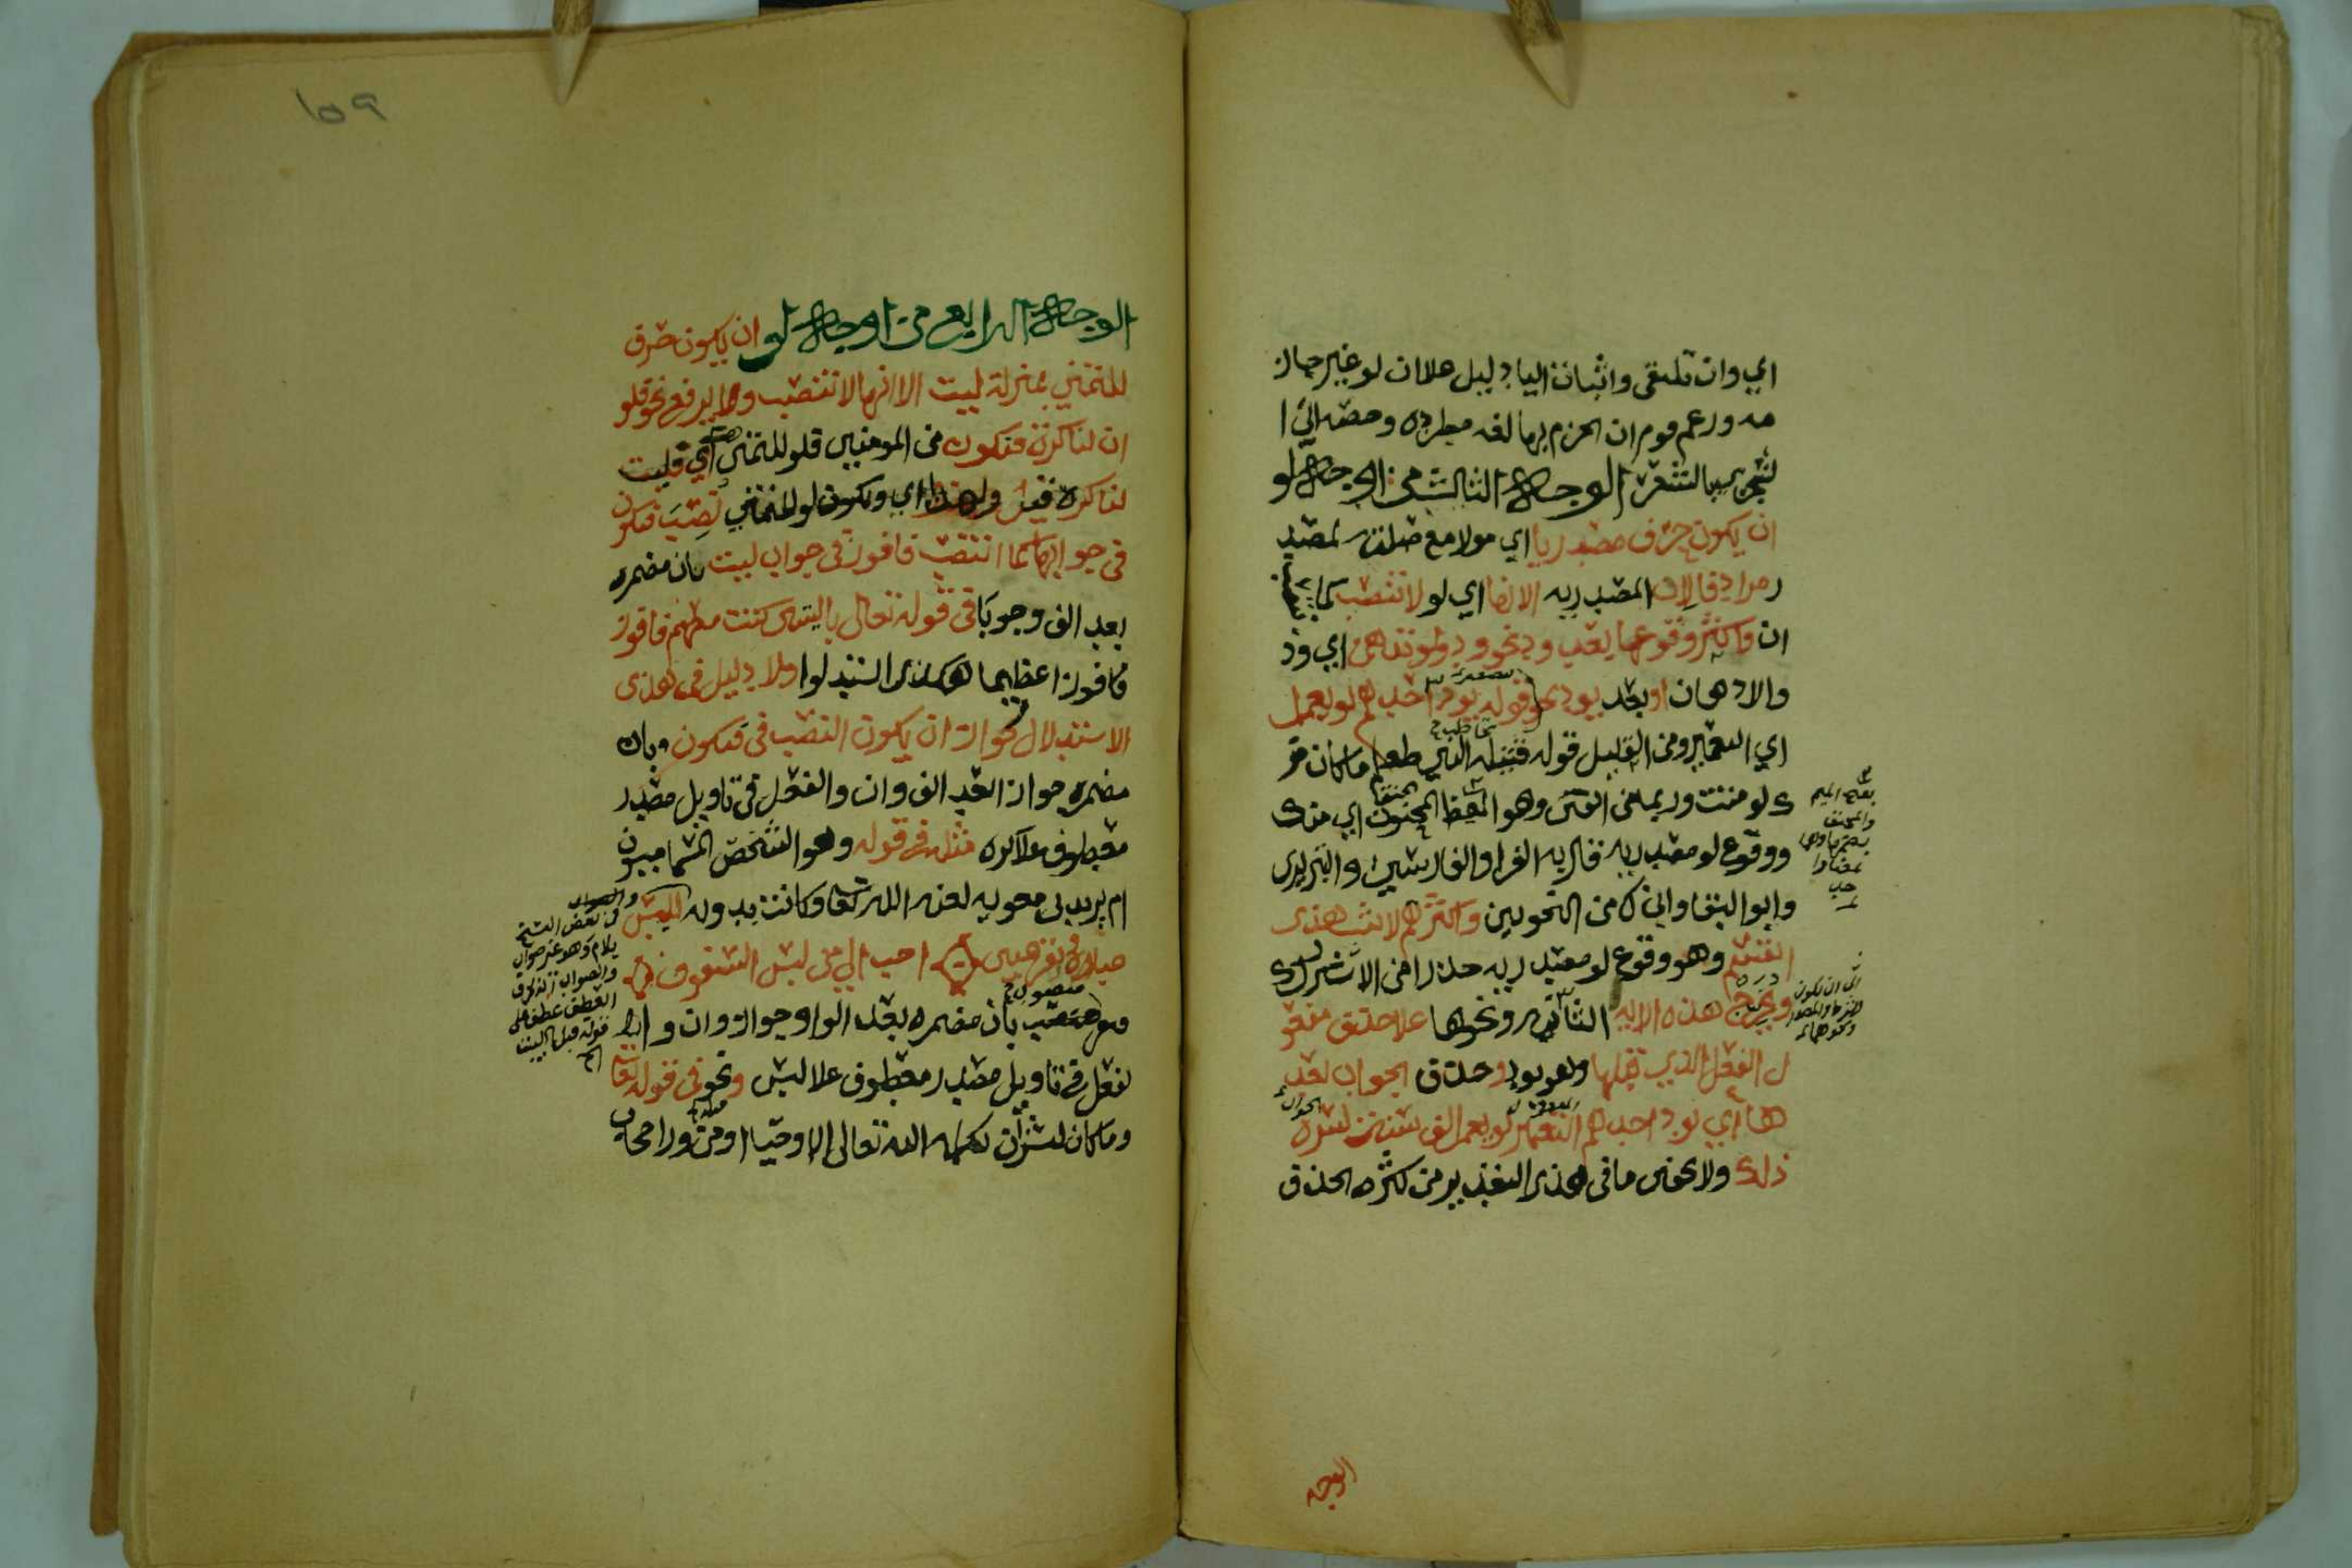 اي وان تلتقى واثبات اليا دليل علا ان لو غير جاز
مه وزعم قوم ان الجزم بها لغه مطرده وخصه ابن ا
لشجري بالشعر الوجه الثالث من اوجه لو
ان يكون حرف مصدريا اي مولا مع صلته بمصدر
مرادفا لان المصدريه الا انها اي لو لا تنصب كما تنصب
ان واكثر وقوعها بعد ود نحو ودوا لو تدهن اي ود
والادهان او بعد يود نحو قوله يود احدهم لو يعمر
اي التعمير ومن القليل قوله قتيله النبي صلعم ما كان ضر
ك لو مننت وربما من الفتى وهو المغيظ المحنق اي منك
ووقوع لو مصدريه قال به الفرا والفارسي والتبريزي
وابو البقا وابن مالك من النحويين واكثرهم لا يثبت هذا
القسم وهو وقوع لو مصدريه حذرا من الاشتراك
ويخرج هذه الايه الثانيه ونحوها علا حذف مفعو
ل الفعل الذي قبلها وهو يود وحذف الجواب بعد
ها اي يود احدهم التعمير لو يعمر الف سنه لسره
ذلك ولا يخفى ما في هذا التقدير من كثره الحذف
بفتح الميم
اي ان تكون
الوجه
١٥٩
الوجه الرابع من اوجه لو ان يكون حرف
للتمني بمنزله ليت الا انها لا تنصب ولا يرفع نحو فلو
ان لنا كرة فنكون من المومنين فلو للتمني اي فليت
لنا كره قيل ولهذا اي ويكون لو للتمني نصب فنكون
في جوابها كما انتصب فافوز في جواب ليت بان مضمره
بعد الفا وجوبا في قوله تعالى يا ليتني كنت معهم فافوز
فافوز فوزا عظيما هكذا استدلوا ولا دليل في هذا
الاستدلال لجواز ان يكون النصب في فنكون بان
مضمره جوازا بعد الفا وان والفعل في تاويل مصدر
معطوف علا كره مثله في قوله وهو الشخص المسما ميسون
ام يزيد بن معويه لعنه الله تعا وكانت بدويه للبس
عباءة وتقر عيني احب الي من لبس الشفوف
وتقر منصوب بان مضمره بعد الواو جوازا وان وا
لفعل في تاويل مصدر معطوف علا لبس ونحو في قوله تعا
وما كان لبشر ان يكلمه الله تعالى الا وحيا او من ورا حجاب
في بعض النسخ
بلام وهو غير صواب
والصواب
العطف عطف على
قوله قبل البيت